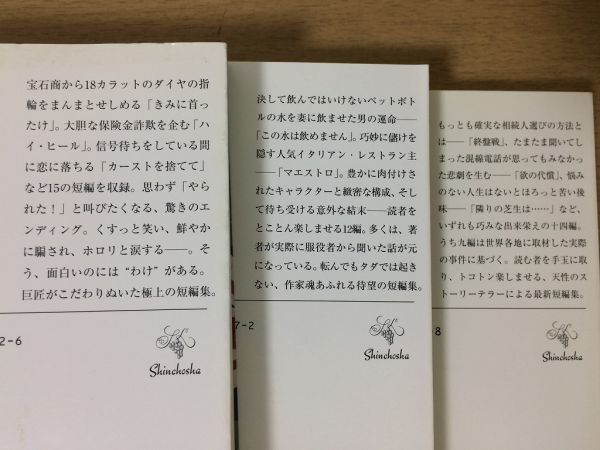 宝石商から18カラットのダイヤの指
輪をまんまとせしめる「きみに首っ
たけ」。大胆な保険金詐欺を企む「ハ
イ・ヒール」。信号待ちをしている間
に恋に落ちる「カーストを捨てて」
など15の短編を収録。思わず「やら
れた！」と叫びたくなる、驚きのエ
ンディング。くすっと笑い、鮮やか
に騙され、ホロリと涙する――。そ
う、面白いのには“わけ”がある。
巨匠がこだわりぬいた極上の短編集。
2-6
Shinchosha
決して飲んではいけないペットボト
ルの水を妻に飲ませた男の運命――
「この水は飲めません」。巧妙に儲けを
隠す人気イタリアン・レストラン主
――「マエストロ」。豊かに肉付けさ
れたキャラクターと緻密な構成、そし
て待ち受ける意外な結末――読者を
とことん楽しませる12編。多くは、著
者が実際に服役者から聞いた話が元
になっている。転んでもタダでは起き
ない、作家魂あふれる待望の短編集。
7-2
Shinchosha
もっとも確実な相続人選びの方法と
は――「終盤戦」、たまたま聞いてしま
った混線電話が思ってもみなかっ
た悲劇を生む――「欲の代償」、悩み
のない人生はないとほろっと苦い後
味――「隣りの芝生は……」など、
いずれも巧みな出来栄えの十四編。
うち九編は世界各地に取材した実際
の事件に基づく。読む者を手玉に取
り、トコトン楽しませる、天性のス
トーリーテラーによる最新短編集。
-8
Shinchosha